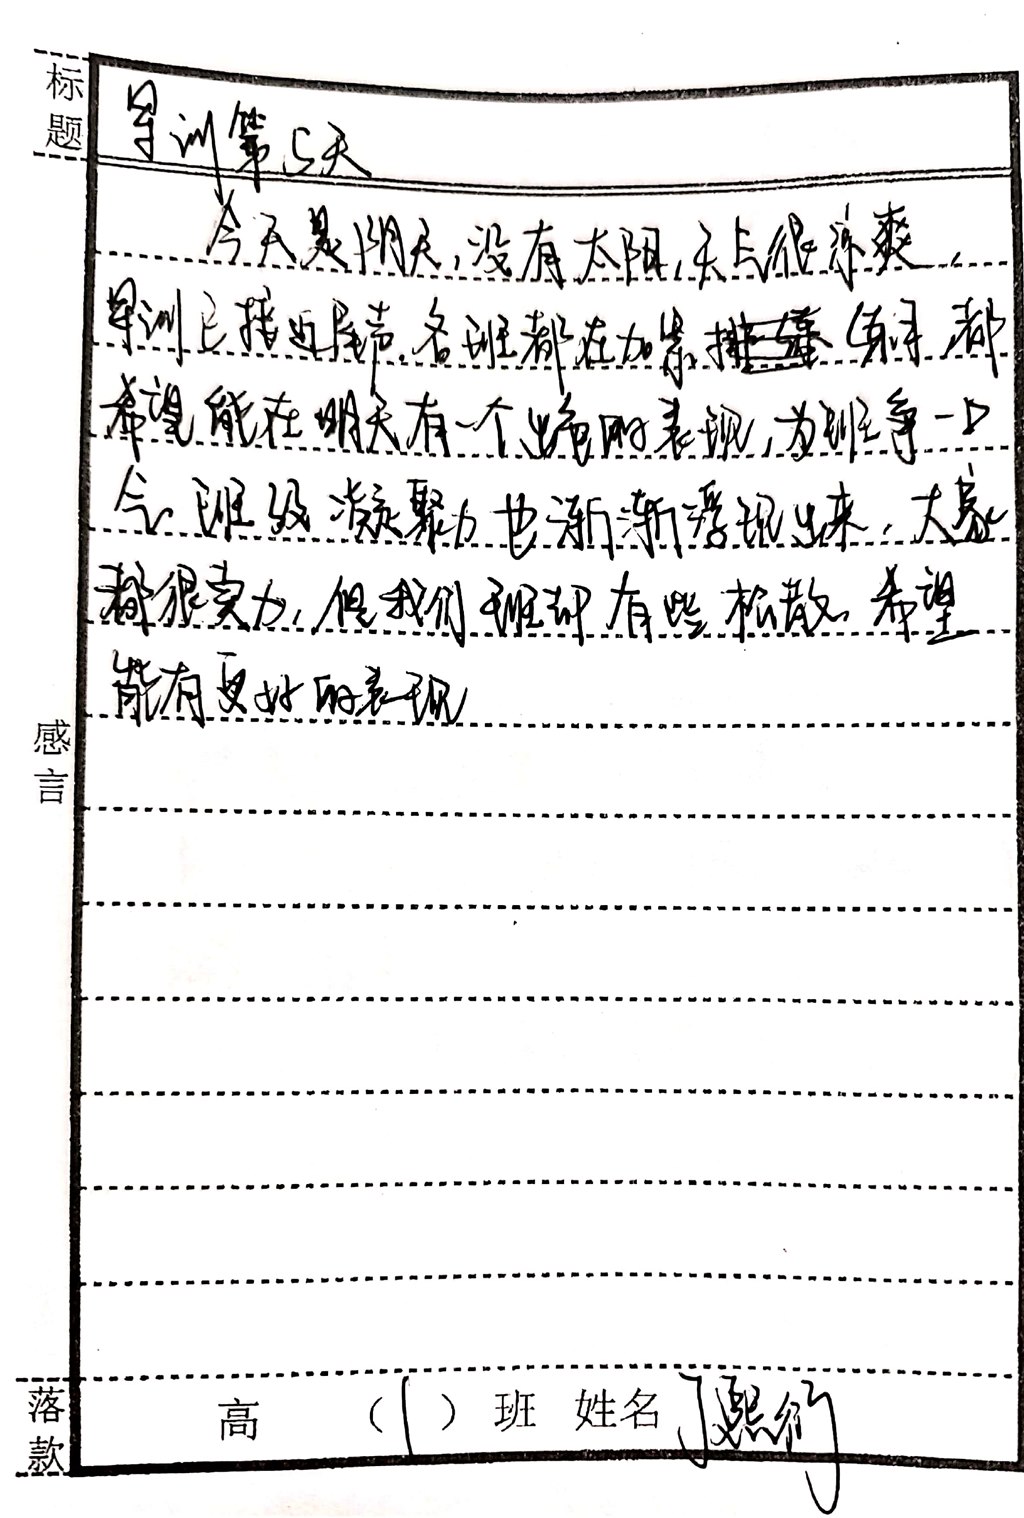 标题
军训第5天
今天是阴天,没有太阳,天气很凉爽,
军训已接近尾声.各班都在加紧排练 都
希望能在明天有一个出色的表现,为班争一口
气. 班级凝聚力也渐渐浮现出来,大家
都很卖力,但我们班却有些松散.希望
能有更好的表现
感言
落款
高 (1) 班 姓名 丁熙衍